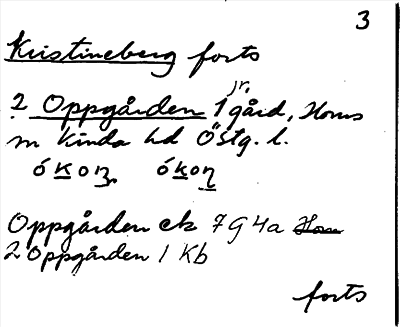 3
Kristineberg forts
2 Oppgården 1 jr. gård, Horns
sn Kinda hd Östg. l.
Oppgården ek 7G4a Horn
2 Oppgården 1 Kb
forts